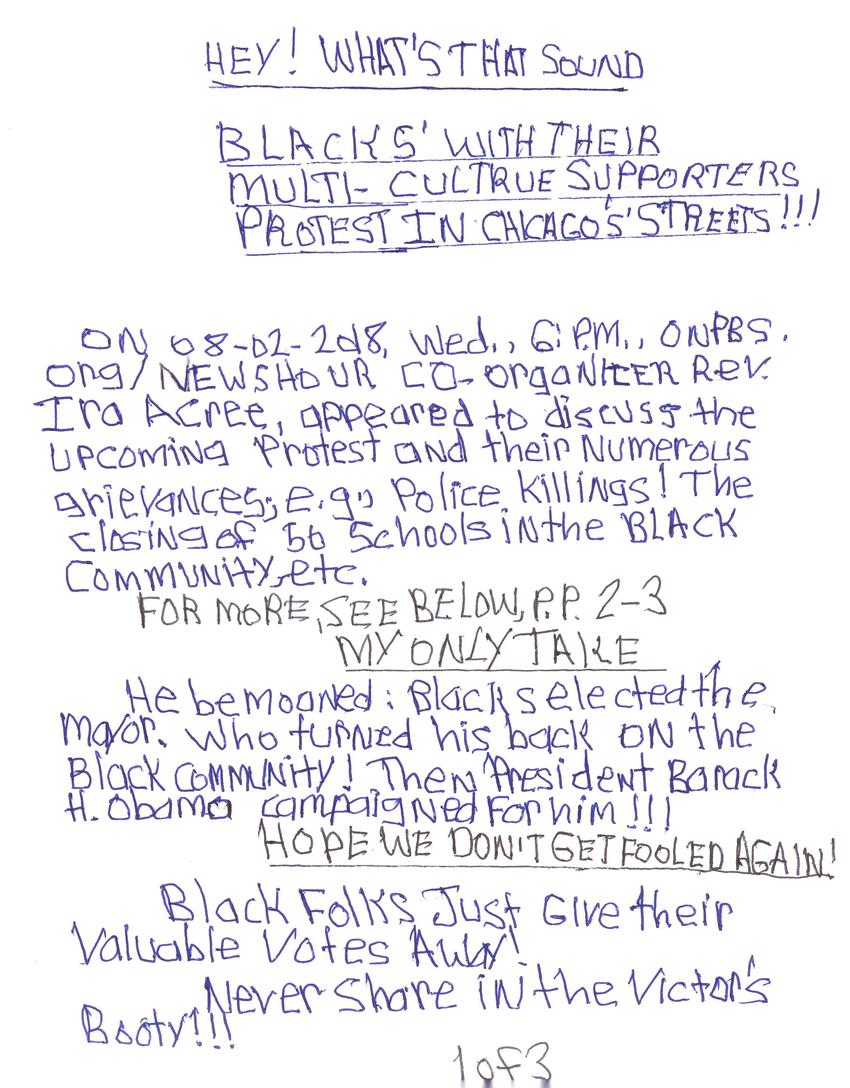 HEY! WHAT'S THAT SOUND
BLACKS' WITH THEIR
MULTI- CULTRUE SUPPORTERS
PROTEST IN CHICAGO'S' STREETS!!!
ON 08-02-2018, Wed., 6: P.M., ON PBS.
org/NEWSHOUR CO-organIZER Rev.
Ira Acree, appeared to discuss the
upcoming Protest and their Numerous
grievances; e.g., Police Killings! The
closing of 50 Schools in the BLACK
Community, etc.
FOR MORE, SEE BELOW, P.P. 2-3
MY ONLY TAKE
He bemoaned: Blacks elected the
mayor. Who turned his back ON the
Black Community! Then President Barack
H. Obama campaigned For him!!!
HOPE WE DON'T GET FOOLED AGAIN!
Black Folks Just Give their
Valuable Votes Away!
Never Share in the Victor's
Booty!!!
1 of 3